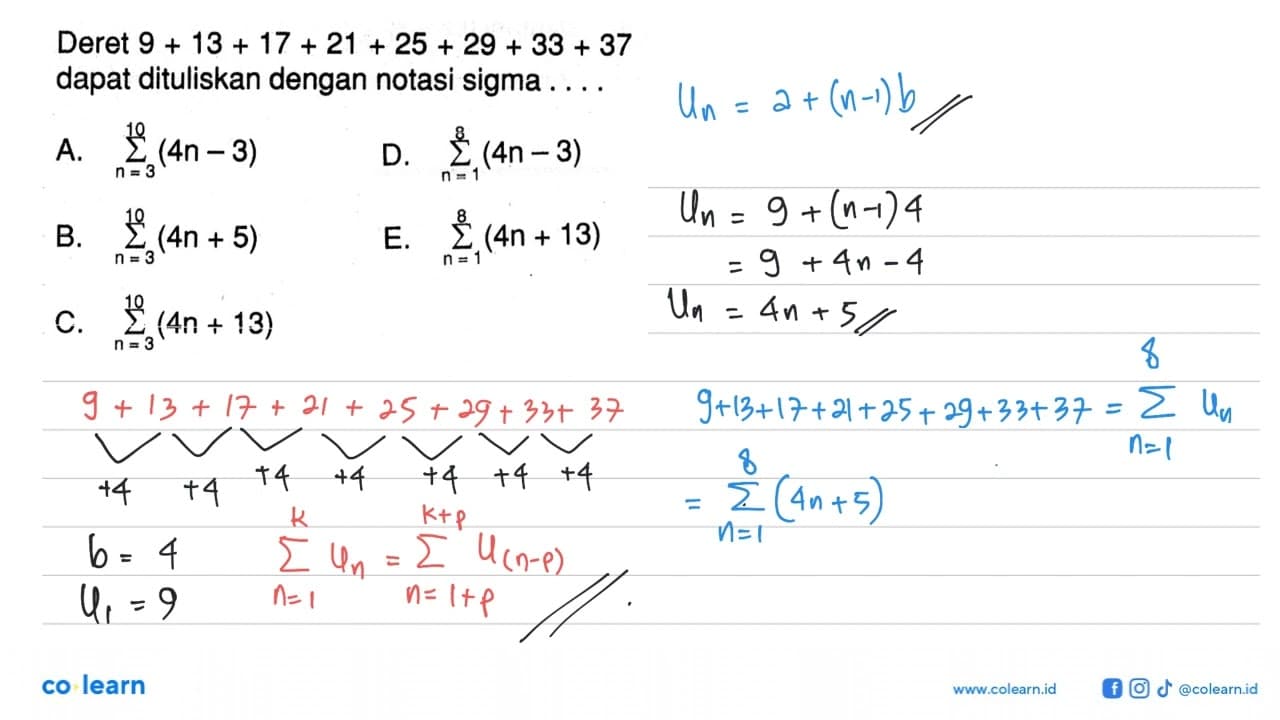 Deret 9 + 13 + 17 + 21 + 25 + 29 + 33 + 37
dapat dituliskan dengan notasi sigma . . . .
A. 10 Σ n = 3 (4n – 3)
D. 8 Σ n = 1 (4n – 3)
B. 10 Σ n = 3 (4n + 5)
E. 8 Σ n = 1 (4n + 13)
C. 10 Σ n = 3 (4n + 13)
Un = a + (n-1)b
Un = 9 + (n-1)4
= 9 + 4n - 4
Un = 4n + 5
9 + 13 + 17 + 21 + 25 + 29 + 33 + 37
+4 +4 +4 +4 +4 +4 +4
b = 4
U1 = 9
k Σ n=1 Un = k+p Σ n=1+p U(n-p)
9+13+17+21+25+29+33+37 = 8 Σ n=1 Un
= 8 Σ n=1 (4n+5)
co learn
www.colearn.id
@colearn.id